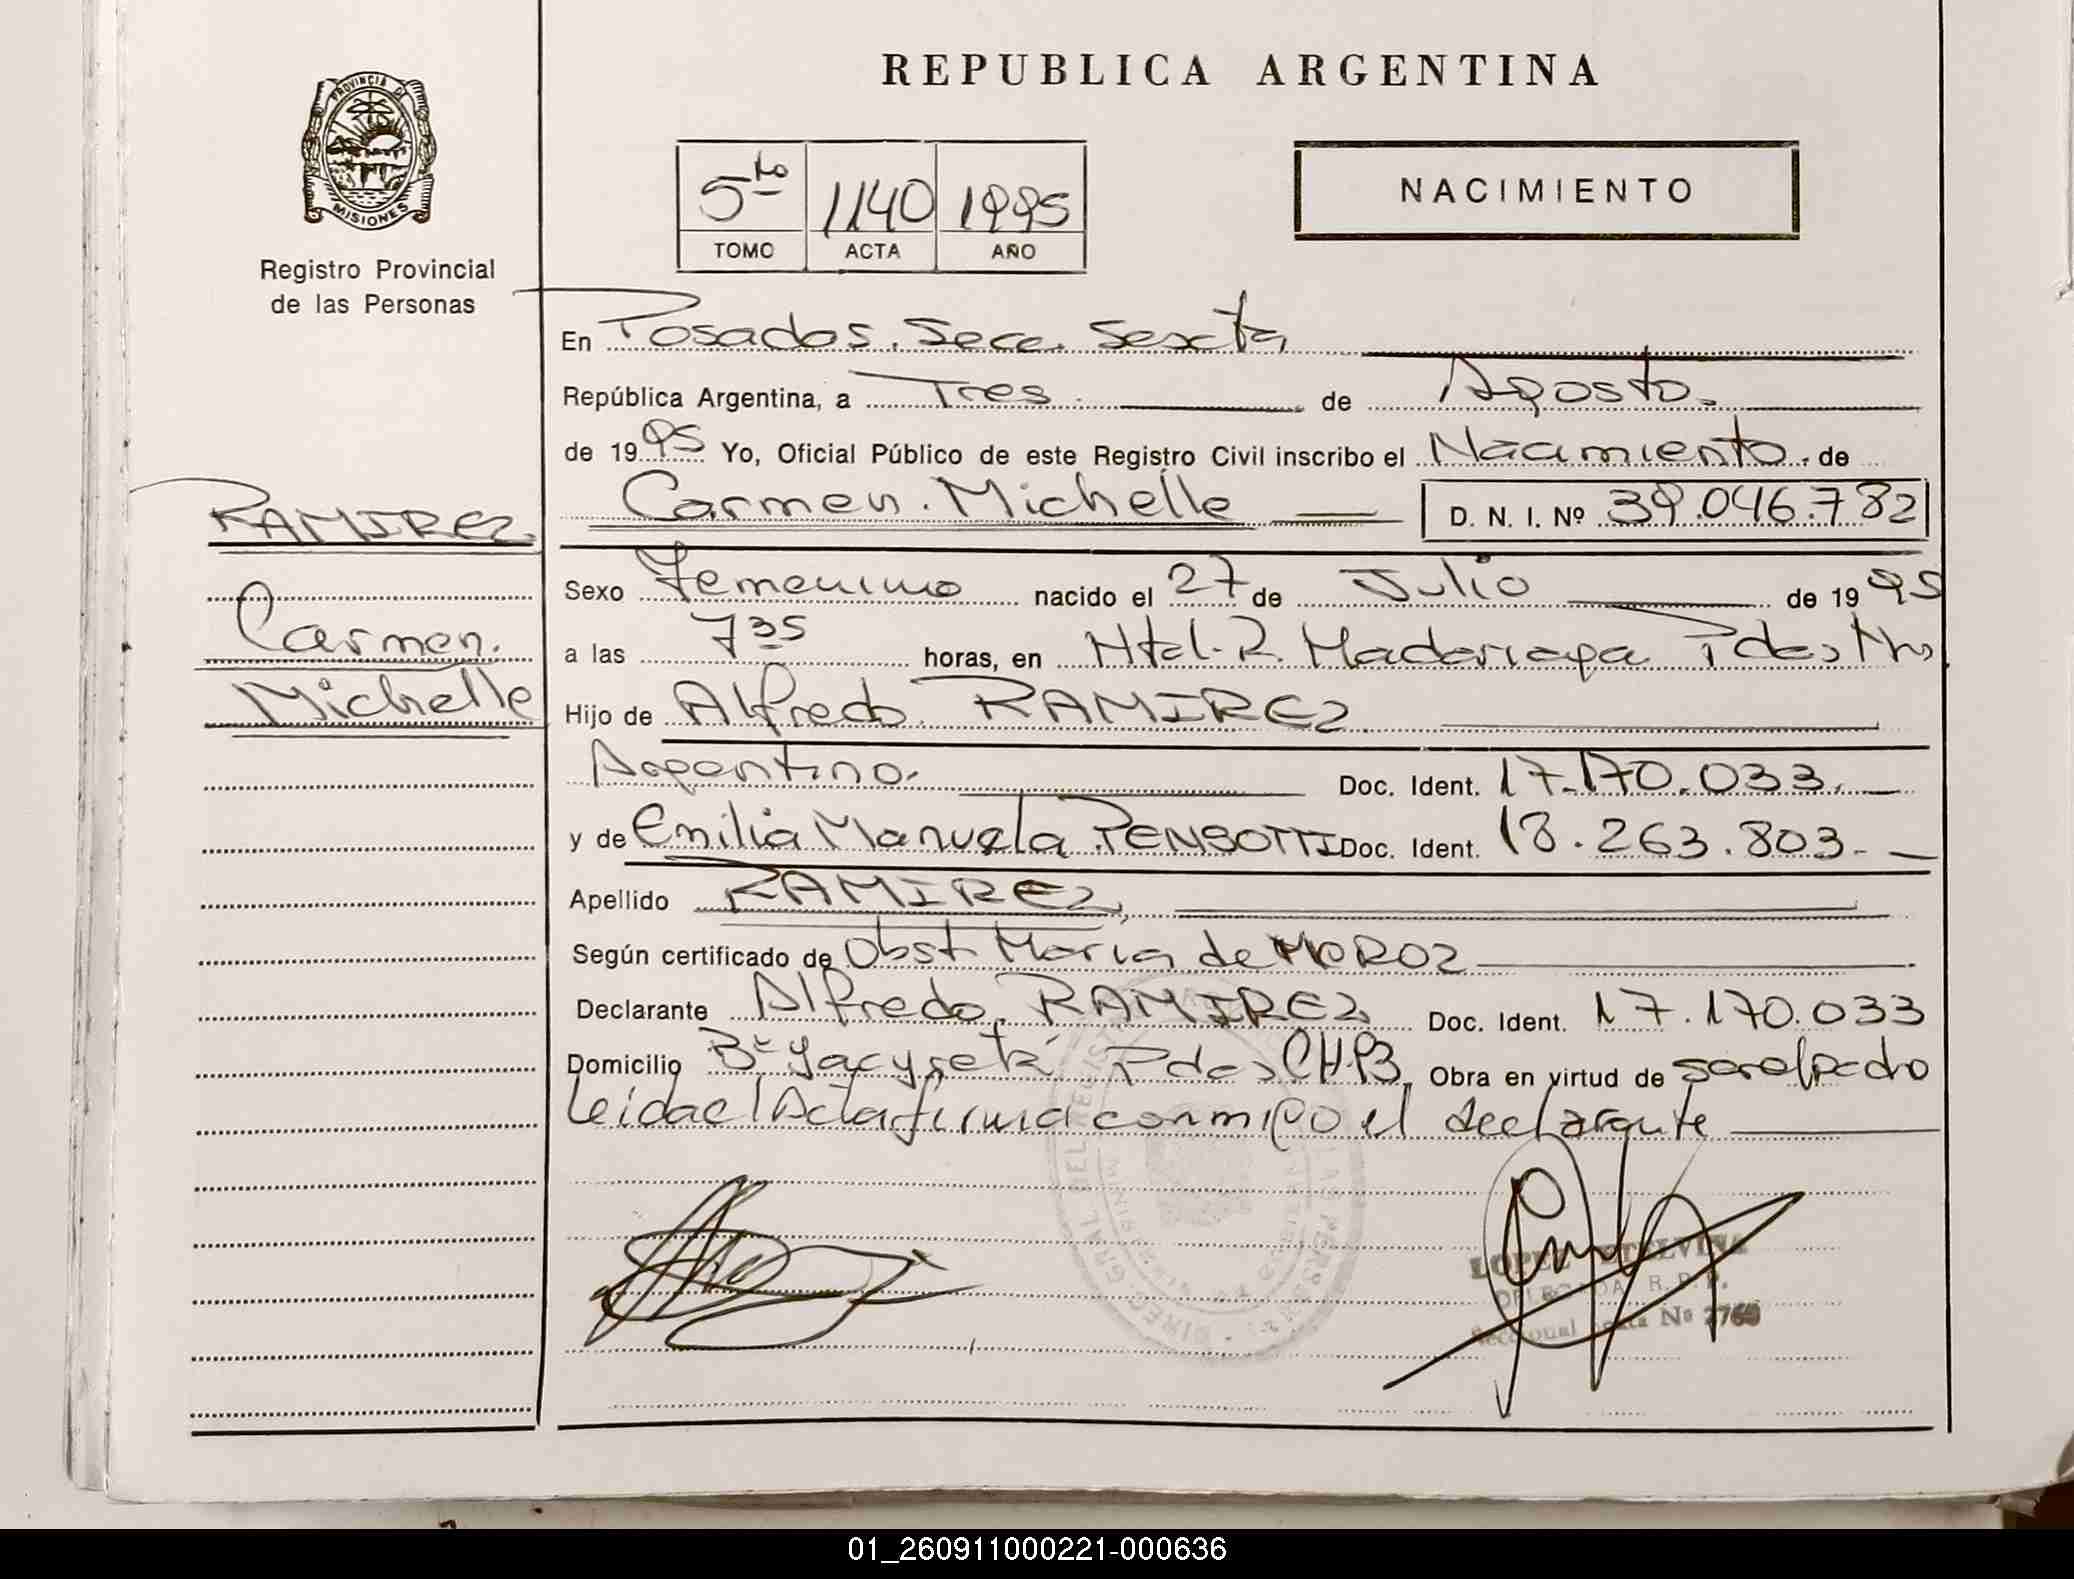 REPUBLICA ARGENTINA
PROVINCIA DE
MISIONES
Registro Provincial
de las Personas
5to 1140 1995
TOMO ACTA AÑO
NACIMIENTO
En Posadas. Secc. Sexta
República Argentina, a Tres de Agosto.
de 1995 Yo, Oficial Público de este Registro Civil inscribo el Nacimiento. de
Carmen. Michelle D. N. I. Nº 39.046.782
RAMIREZ
Carmen.
Michelle
Sexo Femenino nacido el 27 de Julio de 1995
a las 7 35 horas, en Htal. R. Madariaga Pdas Mns
Hijo de Alfredo RAMIREZ
Argentino. Doc. Ident. 17.170.033.
y de Emilia Manuela PENSOTTI Doc. Ident. 18.263.803.
Apellido RAMIREZ
Según certificado de Obst. Maria de MOROZ
Declarante Alfredo RAMIREZ Doc. Ident. 17.170.033
Domicilio Bº Yacyretá Pdas CH P3 Obra en virtud de ser el padre
Leida el Acta firma conmigo el declarante
LOPEZ ETELVINA
DELEGADA R. P. P.
Seccional Sexta Nº
01_260911000221-000636